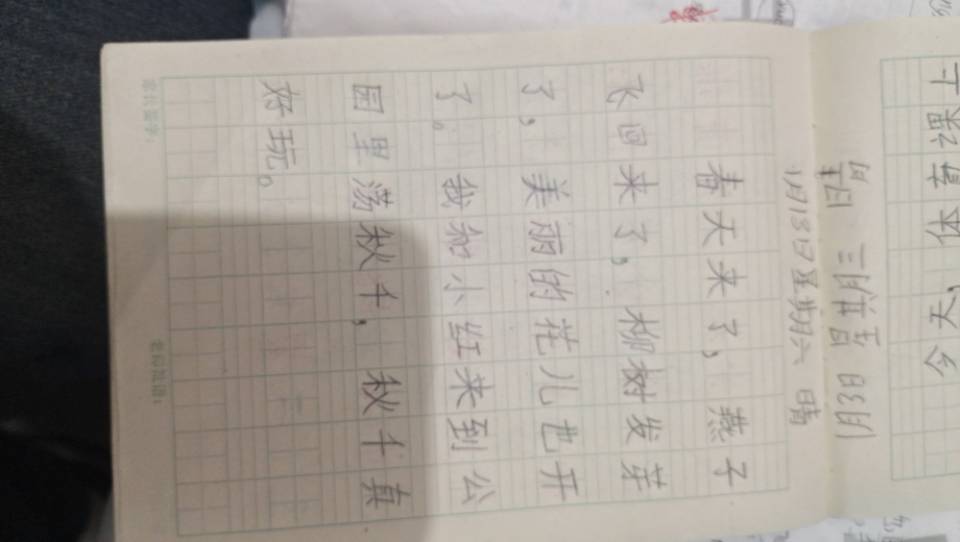 1月18日星期六 晴
春天来了，燕子
飞回来了，柳树发芽
了，美丽的花儿也开
了。我和小红来到公
园里荡秋千，秋千真
好玩。
今天，体育课上